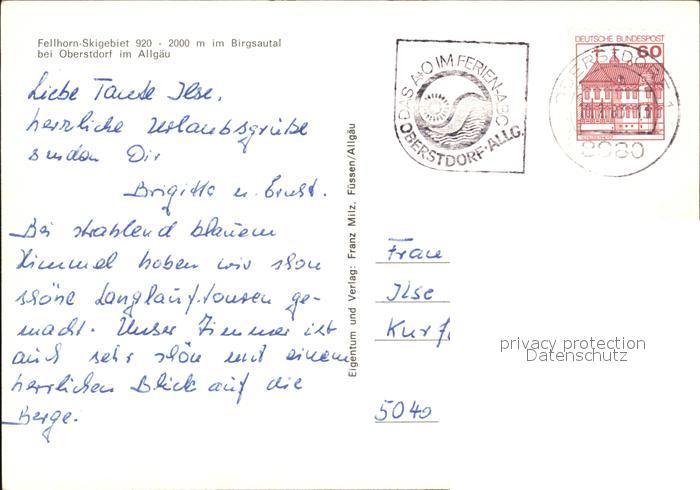 Fellhorn-Skigebiet 920 - 2000 m im Birgsautal
bei Oberstdorf im Allgäu
Liebe Tante Ilse,
herzliche Urlaubsgrüße
senden Dir
Brigitte u. Ernst.
Bei strahlend blauem
Himmel haben wir schon
schöne Langlauftouren ge-
macht. Unser Zimmer ist
auch sehr schön mit einem
herrlichen Blick auf die
Berge.
Eigentum und Verlag: Franz Milz, Füssen/Allgäu
DAS A+O IM FERIEN-ABC
OBERSTDORF-ALLG.
DEUTSCHE BUNDESPOST
60
OBERSTDORF
8980
Frau
Ilse
Kurf
privacy protection
Datenschutz
5040